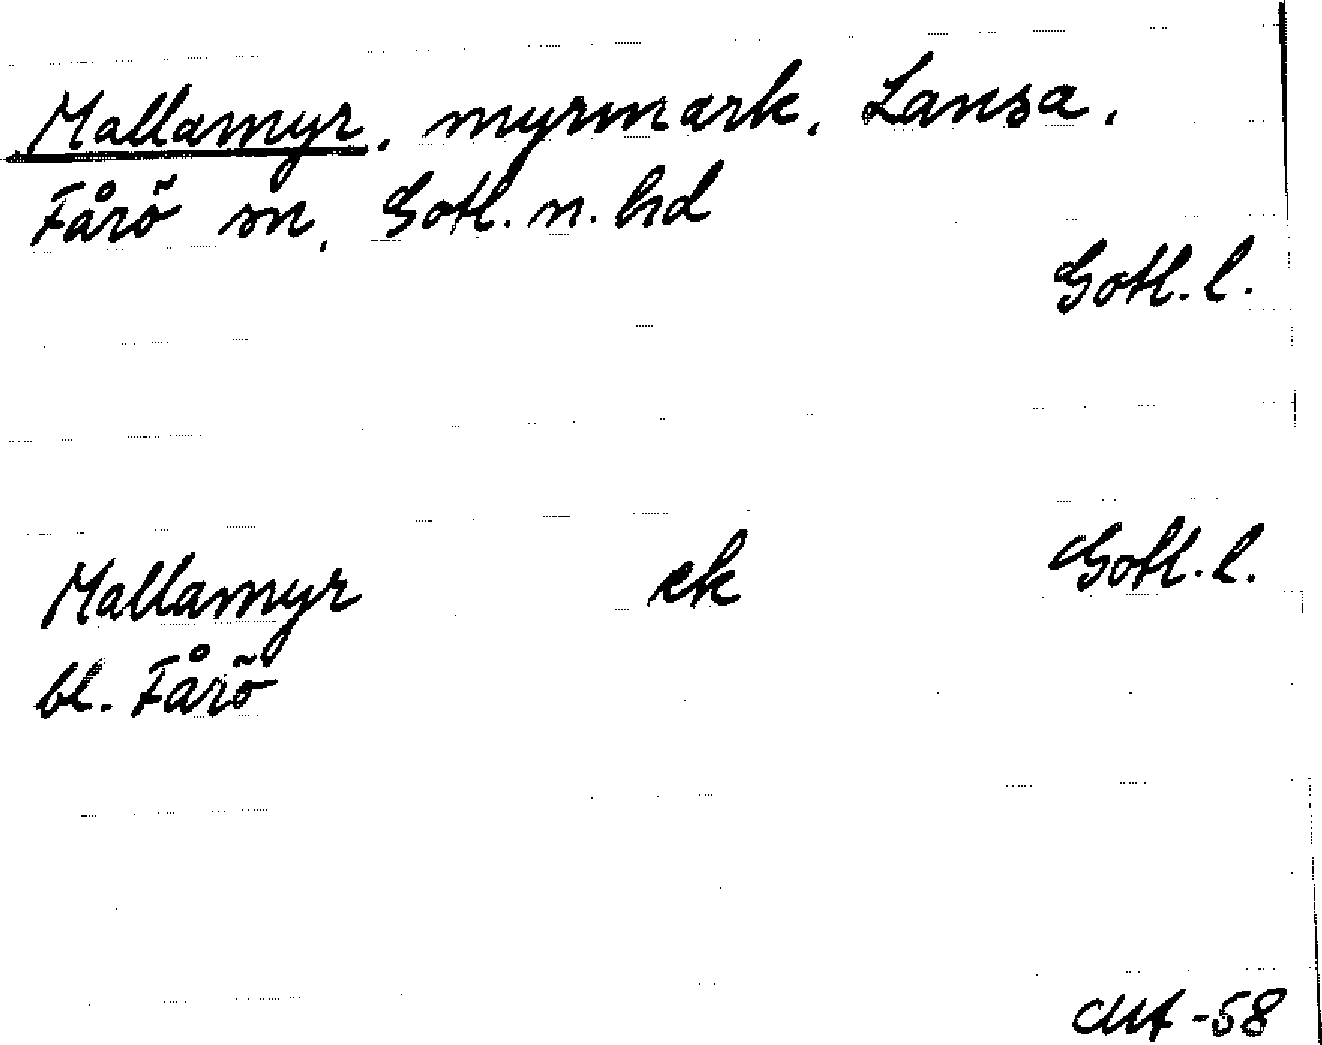 Mallamyr, myrmark, Lansa,
Fårö sn, Gotl. n. hd
Gotl. l.
Mallamyr ek Gotl. l.
bl. Fårö
-58